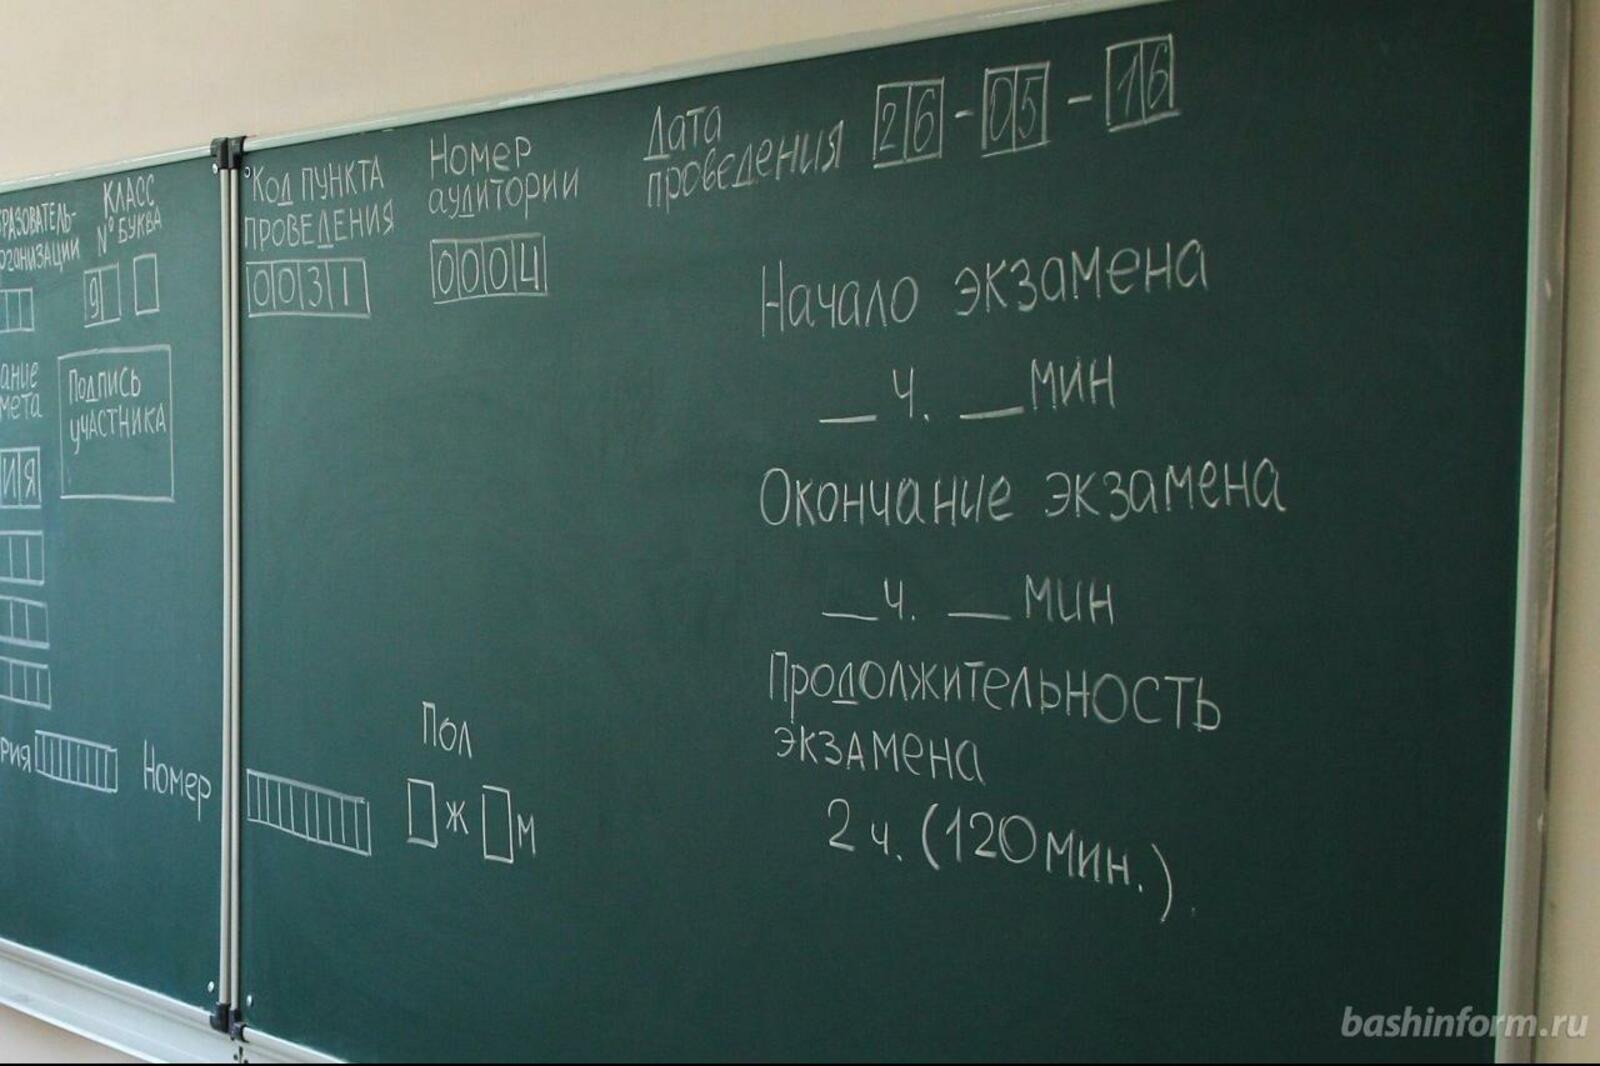 КЛАСС
№ БУКВА
9
Подпись
участника
ИЯ
Номер
Код пункта
проведения
0031
Номер
аудитории
0004
Дата
проведения 26-05-16
Начало экзамена
__ ч. __ мин
Окончание экзамена
__ ч. __ мин
Продолжительность
экзамена
2 ч. (120 мин.)
Пол
Ж М
bashinform.ru